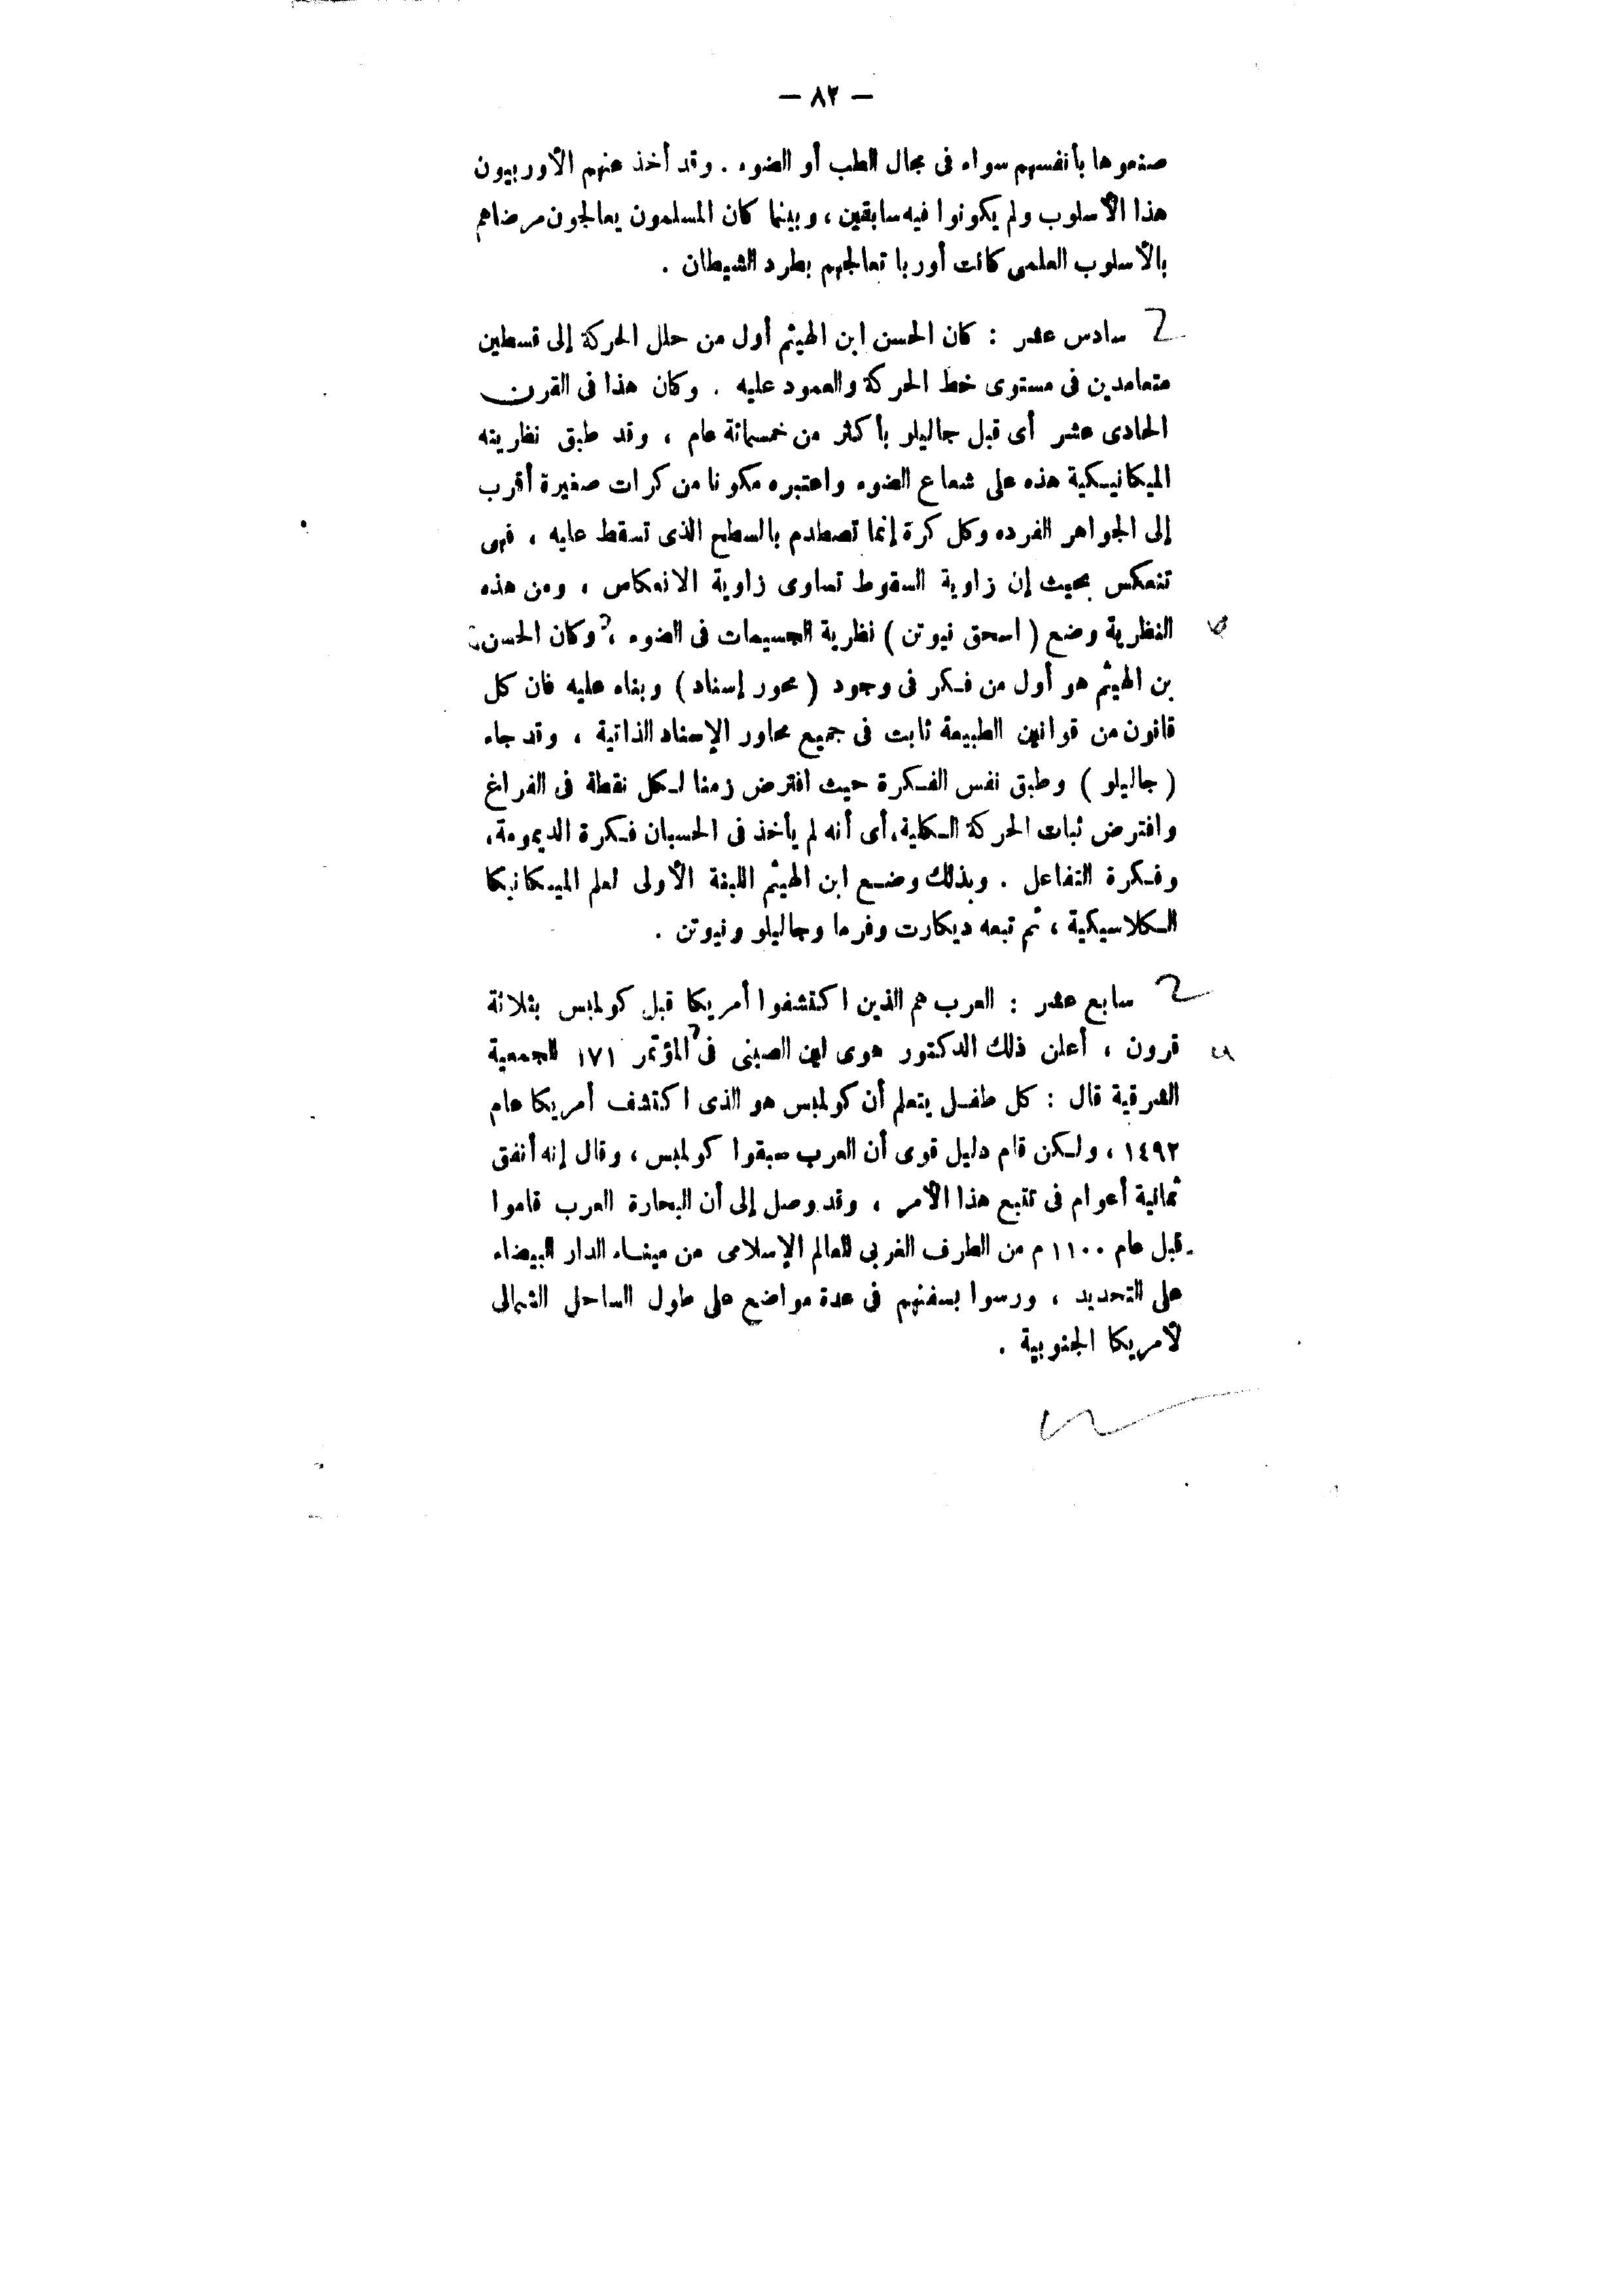 — ٨٢ —
صنعوها بأنفسهم سواء فى مجال الطب أو الضوء . وقد أخذ عنهم الأوربيون
هذا الأسلوب ولم يكونوا فيه سابقين ، وبينما كان المسلمون يعالجون مرضاهم
بالأسلوب العلمى كانت أوربا تعالجهم بطرد الشيطان .
سادس عشر : كان الحسن ابن الهيثم أول من حلل الحركة إلى قسطين
متعامدين فى مستوى خط الحركة والعمود عليه . وكان هذا فى القرن
الحادى عشر أى قبل جاليلو بأكثر من خمسمائة عام ، وقد طبق نظريته
الميكانيكية هذه على شعاع الضوء واعتبره مكونا من كرات صغيرة أقرب
إلى الجواهر الفرده وكل كرة إنما تصطدم بالسطح الذى تسقط عليه ، فهى
تنعكس بحيث إن زاوية السقوط تساوى زاوية الانعكاس ، ومن هذه
النظرية وضع ( اسحق نيوتن ) نظرية الجسيمات فى الضوء ، وكان الحسن
بن الهيثم هو أول من فكر فى وجود ( محور إسناد ) وبناه عليه فان كل
قانون من قوانين الطبيعة ثابت فى جميع محاور الإسناد الذاتية ، وقد جاء
( جاليلو ) وطبق نفس الفكرة حيث افترض زمنا لكل نقطة فى الفراغ
وافترض ثبات الحركة الكلية ، أى أنه لم يأخذ فى الحسبان فكرة الديمومة ،
وفكرة التفاعل . وبذلك وضع ابن الهيثم اللبنة الأولى لعلم الميكانيكا
الكلاسيكية ، ثم تبعه ديكارت وفرما وجاليلو ونيوتن .
سابع عشر : العرب هم الذين اكتشفوا أمريكا قبل كولمبس بثلاثة
قرون ، أعلن ذلك الدكتور هوى لين الصينى فى المؤتمر ١٧١ للجمعية
الشرقية قال : كل طفل يتعلم أن كولمبس هو الذى اكتشف أمريكا عام
١٤٩٢ ، ولكن قام دليل قوى أن العرب سبقوا كولمبس ، وقال إنه أنفق
ثمانية أعوام فى تتبع هذا الأمر ، وقد وصل إلى أن البحارة العرب قاموا
قبل عام ١١٠٠ م من الطرف الغربى للعالم الإسلامى من ميناء الدار البيضاء
على التحديد ، ورسوا بسفنهم فى عدة مواضع على طول الساحل الشمالى
لأمريكا الجنوبية .